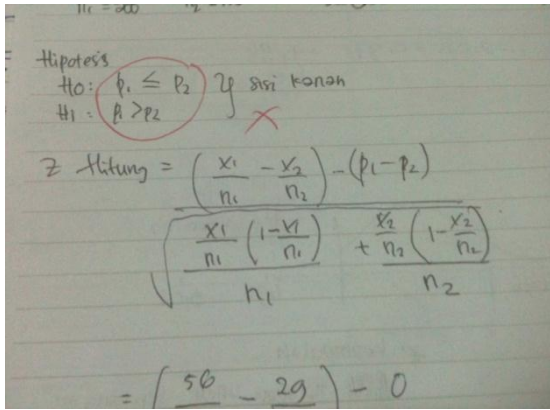 n₁ = 200
Hipotesis
H0: p₁ ≤ p₂ } sisi kanan
H1: p₁ > p₂
Z Hitung = (x₁/n₁ - x₂/n₂) - (p₁ - p₂)
√ x₁/n₁ (1 - x₁/n₁) / n₁ + x₂/n₂ (1 - x₂/n₂) / n₂
= ( 56 - 29 ) - 0